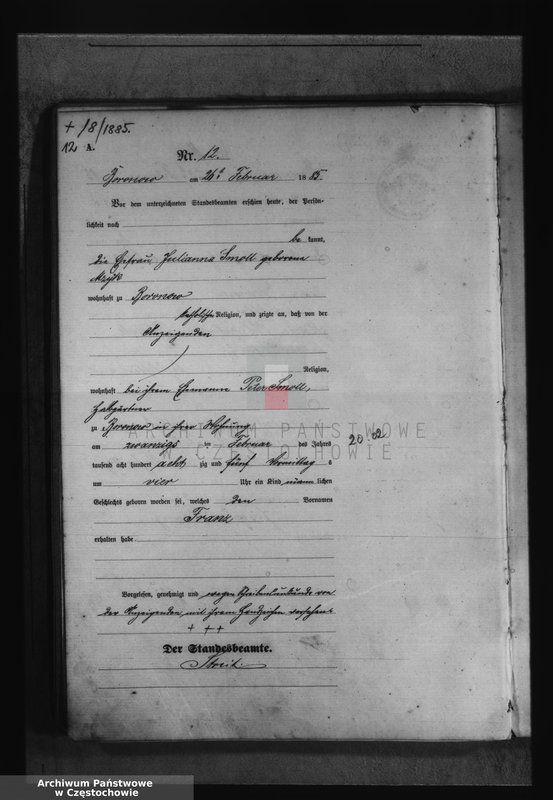 + 18/1885.
12 A.
Nr. 12.
Boronow am 26ᵗ Februar 1885.
Vor dem unterzeichneten Standesbeamten erschien heute, der Persön-
lichkeit nach
be kannt,
die Ehefrau Julianna Smoll geborene
wohnhaft zu Boronow
katholischer Religion, und zeigte an, daß von der
Anzeigenden
Religion,
wohnhaft bei ihrem Ehemanne Peter Smoll,
Halbgärtner
zu Boronow in ihrer Wohnung
am zwanzigs ten Februar des Jahres
tausend acht hundert acht zig und fünf Vormittag s
um vier Uhr ein Kind männ lichen
Geschlechts geboren worden sei, welches den Vornamen
Franz
erhalten habe
Vorgelesen, genehmigt und wegen Schreibensunkunde von
der Anzeigenden mit ihrem Handzeichen versehen.
+ + +
Der Standesbeamte.
20.02
ARCHIWUM PAŃSTWOWE
W CZĘSTOCHOWIE
Archiwum Państwowe
w Częstochowie